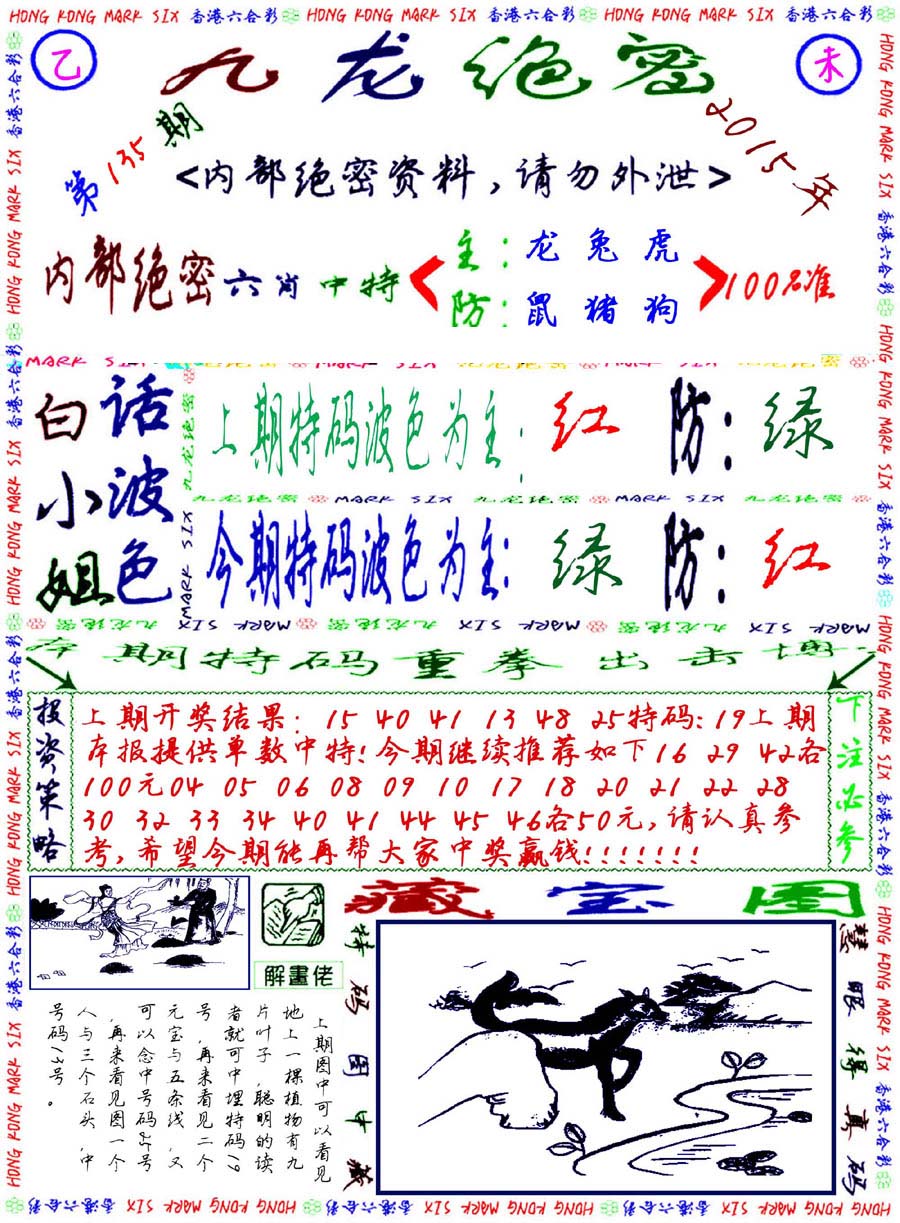 HONG KONG MARK SIX 香港六合彩 HONG KONG MARK SIX 香港六合彩 HONG KONG MARK SIX 香港六合彩
乙
九龙绝密
未
第135期
2015年
<内部绝密资料,请勿外泄>
内部绝密六肖中特
主:龙兔虎
防:鼠猪狗
100%准
白小姐
话波色
上期特码波色为主:红 防:绿
九龙绝密 MARK SIX 九龙绝密 MARK SIX 九龙绝密
今期特码波色为主:绿 防:红
期特码重拳出击博
投资策略
上期开奖结果:15 40 41 13 48 25特码:19上期
本报提供单数中特!今期继续推荐如下16 29 42各
100元04 05 06 08 09 10 17 18 20 21 22 28
30 32 33 34 40 41 44 45 46各50元,请认真参
考,希望今期能再帮大家中奖赢钱!!!!!!!
下注必参
藏宝图
解畫佬
特码图中藏
慧眼得真码
上期图中可以看见
地上一棵植物有九
片叶子,聪明的读
者就可中埋特码19
号,再来看见二个
元宝与五条线,又
可以念中号码25号
,再来看见图一个
人与三个石头,中
号码13号。